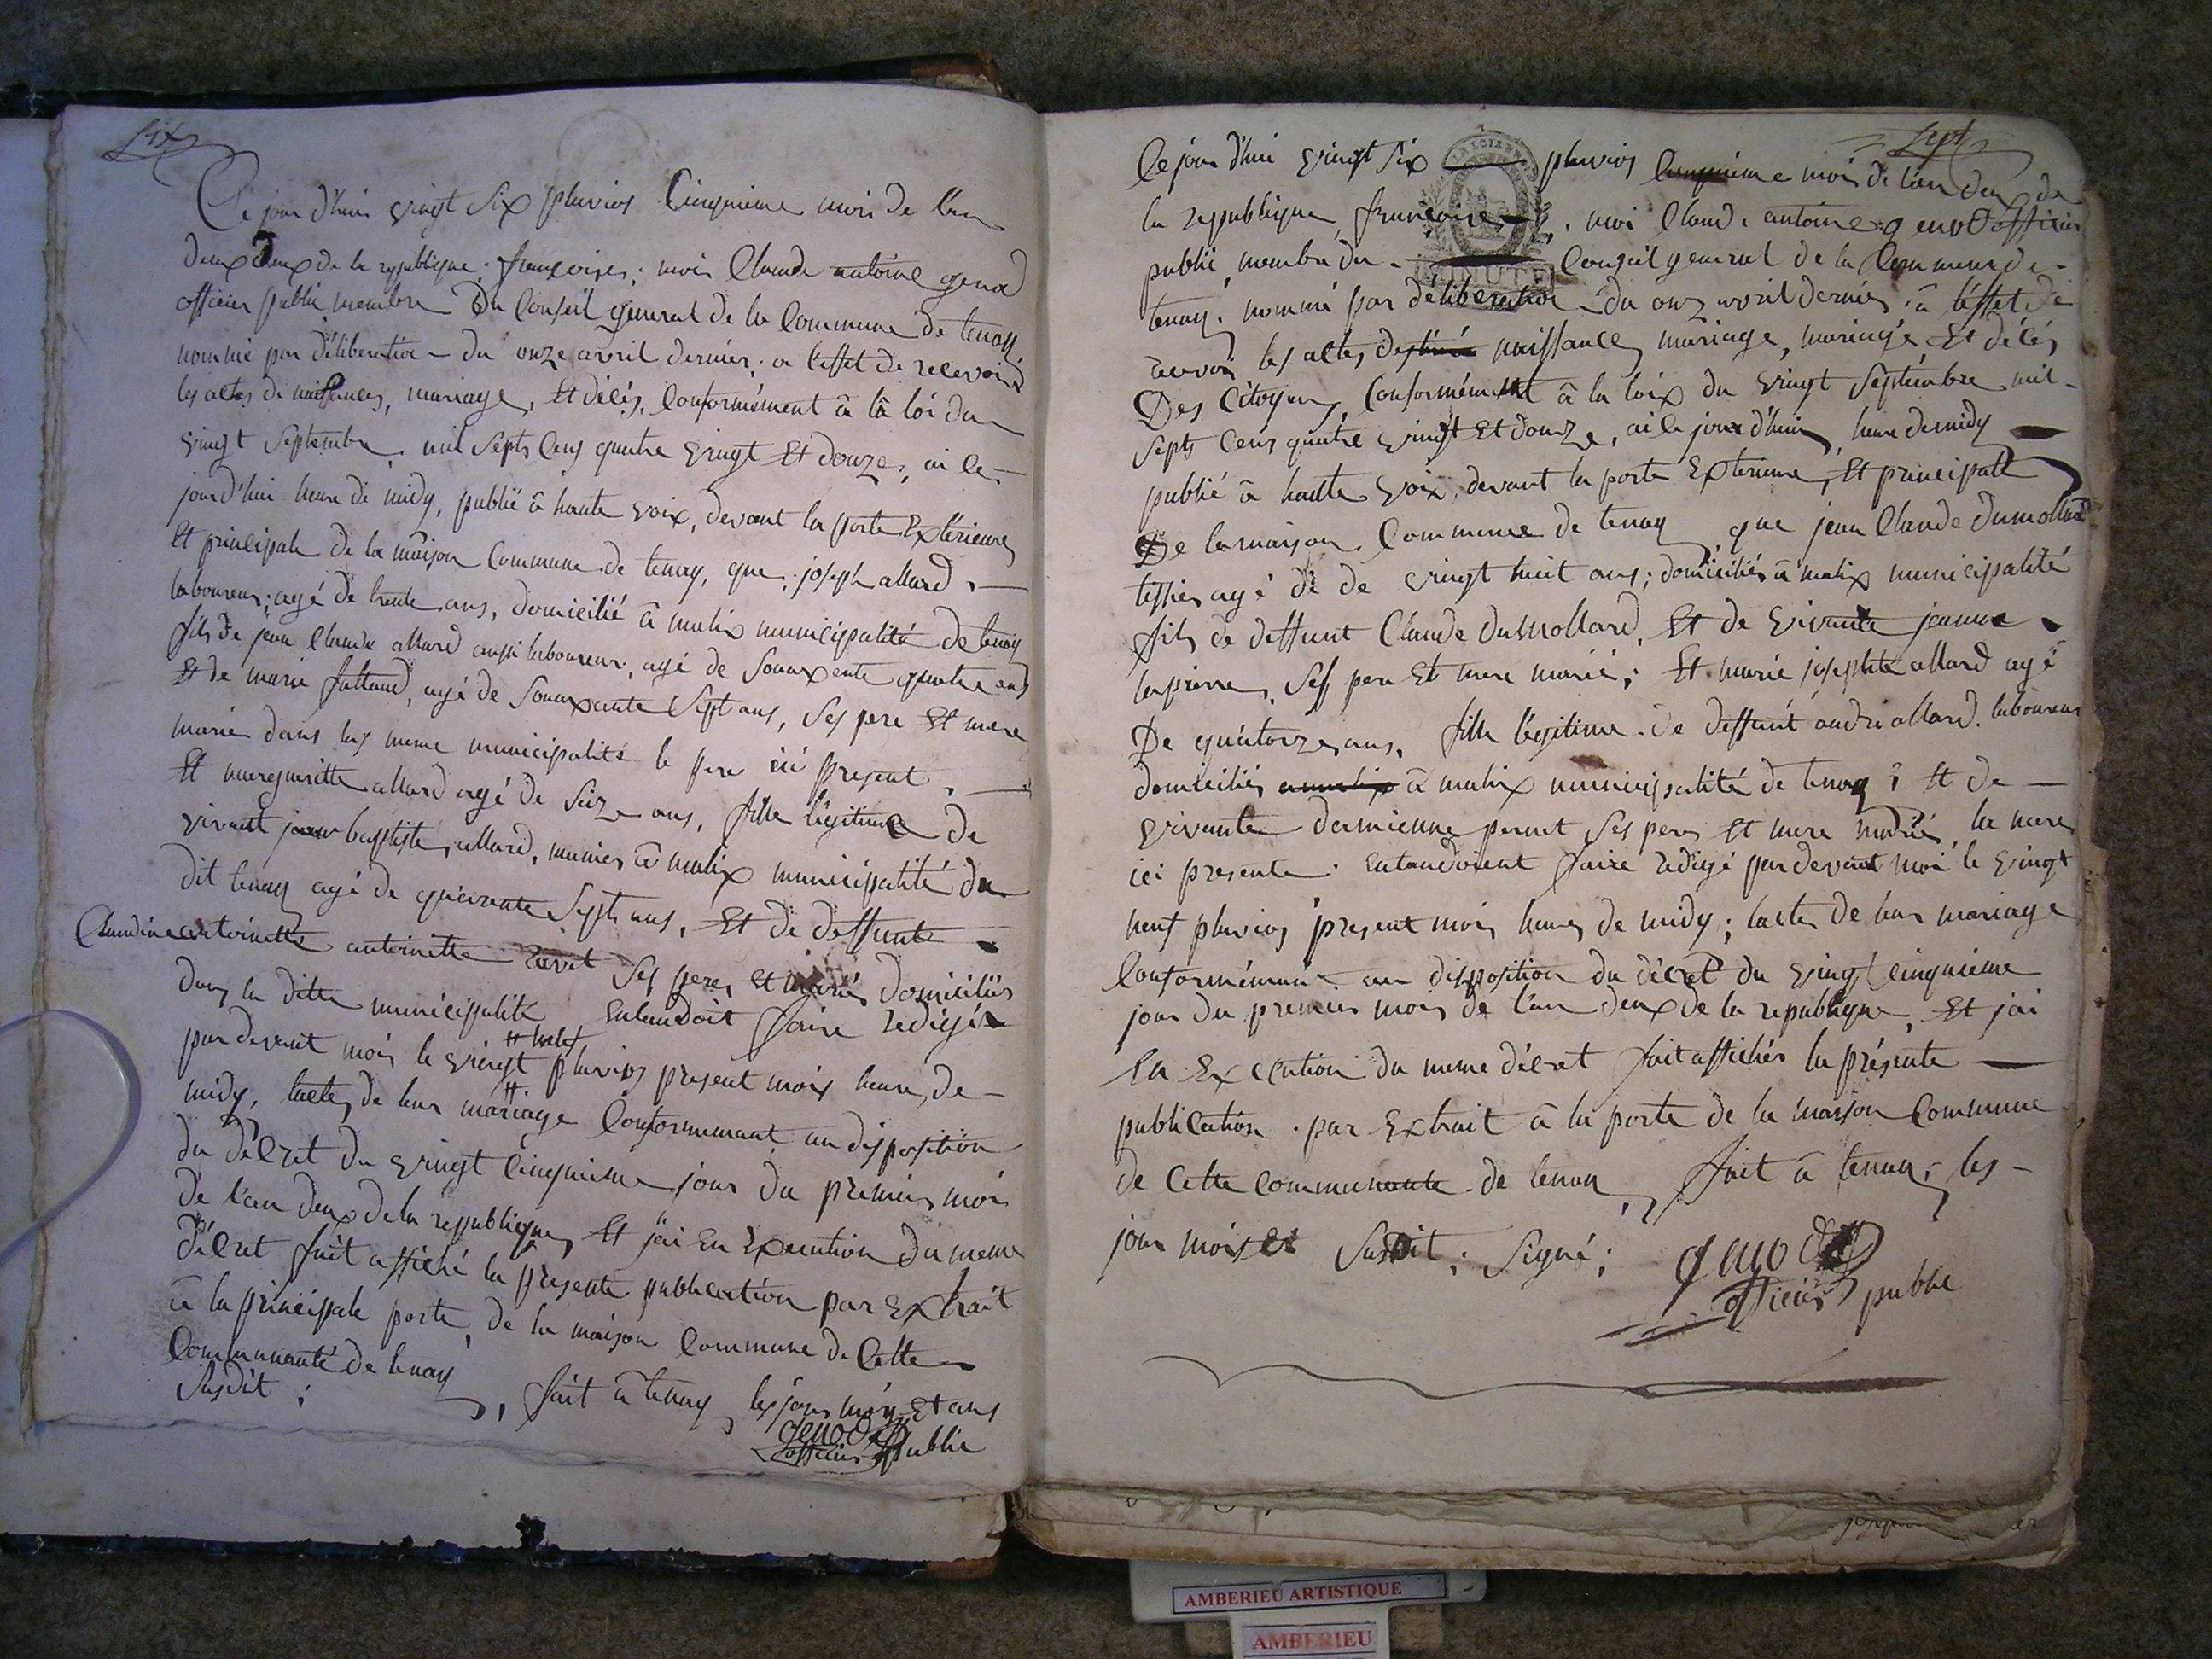 Six
Ce jour d'hui vingt six pluvios Cinquieme mois de l'an
deux deux de la republique françoises; moi Claude antoine genod
officier public membre Du Conseil general de la Commune de tenay
nommé par déliberation du onze avril dernier; a l'effet de recevoir
les actes de naissances, mariage, Et décés, Conformément â la loi du
vingt Septembre mil Septs Cens quatre vingt Et douze, ai ce
jourd'hui heure de midy, publié â haute voix, devant la porte Extérieure
Et principale de la maison Commune de tenay, que joseph allard,
laboureur; agé de trente ans, domicilié â malix municipalité de tenay
fils de jean Claude allard aussi laboureur; agé de Souaxente quatre ans
Et de marie agé de Souaxante Sept ans, Ses pere Et mere
mariés dans la meme municipalité le pere ici present,
Et margueritte allard agé de Seize ans, fille légitime de
vivant jean baptiste allard, munier â malix municipalité du
dit tenay agé de quarante Septs ans, Et de deffunte
Claudine antoinette antoinette Ses peres Et mariés Domiciliés
dans la ditte municipalité Entendoit faire rediger
Et neuf
par devant moi le vingt pluvios present mois heure, de
midy, lacte, de leur mariage Conformemant au disposition
du décret du vingt Cinquieme jour du premier mois
de l'an deux de la republique, Et j'ai En Execution du meme
décret fait affiché la presente publication par Extrait
â la principale porte, de la maison Commune de Cette
Communauté de tenay, fait â tenay les jour mois Et ans
Susdit;
genod
officier public
Sept
Ce jour d'hui vingt Six pluvios Cinquieme mois de l'an deux de
la republique françoise moi Claude antoine genod officier
public membre du Conseil general de la Commune de
tenay, nommé par déliberation du onz avril dernier; â l'effet de
recevoir les actes naissance, mariage, mariage Et décés
Des Citoyens Conformément â la loix du vingt Septembre mil
Septs Cens quatre vingt Et douze, ai ce jour d'hui heure de midy
publié â haute voix, devant la porte Exterieure, Et principalle
De la maison Commune de tenay que jean Claude Dumollard
tessier agé de de vingt huit ans; domiciliés â malix municipalité
fils de deffunt Claude Dumollard, Et de vivante jeanne
lapierre, Ses pere Et mere marié; Et marie josephte allard agé
De quatorze ans, fille légitime de deffunt andre allard laboureur
domiciliés a malix â malix municipalité de tenay; Et de
vivante damienne pernet Ses pere Et mere mariés, la mere
ici presente Entendoient faire redigé par devant moi le vingt
neuf pluvios present mois heures de midy; lacte de leur mariage
Conformément au disposition du décret du vingt Cinquieme
jour du premier mois de l'an deux de la republique, Et j'ai
En Execution du meme décret fait affichés la présente
publication par Extrait â la porte de la maison Commune
de Cette Communauté de tenay, fait â tenay, les
jour mois et Susdit; Signé; genod
officier public
MINUTE
AMBERIEU ARTISTIQUE
AMBERIEU